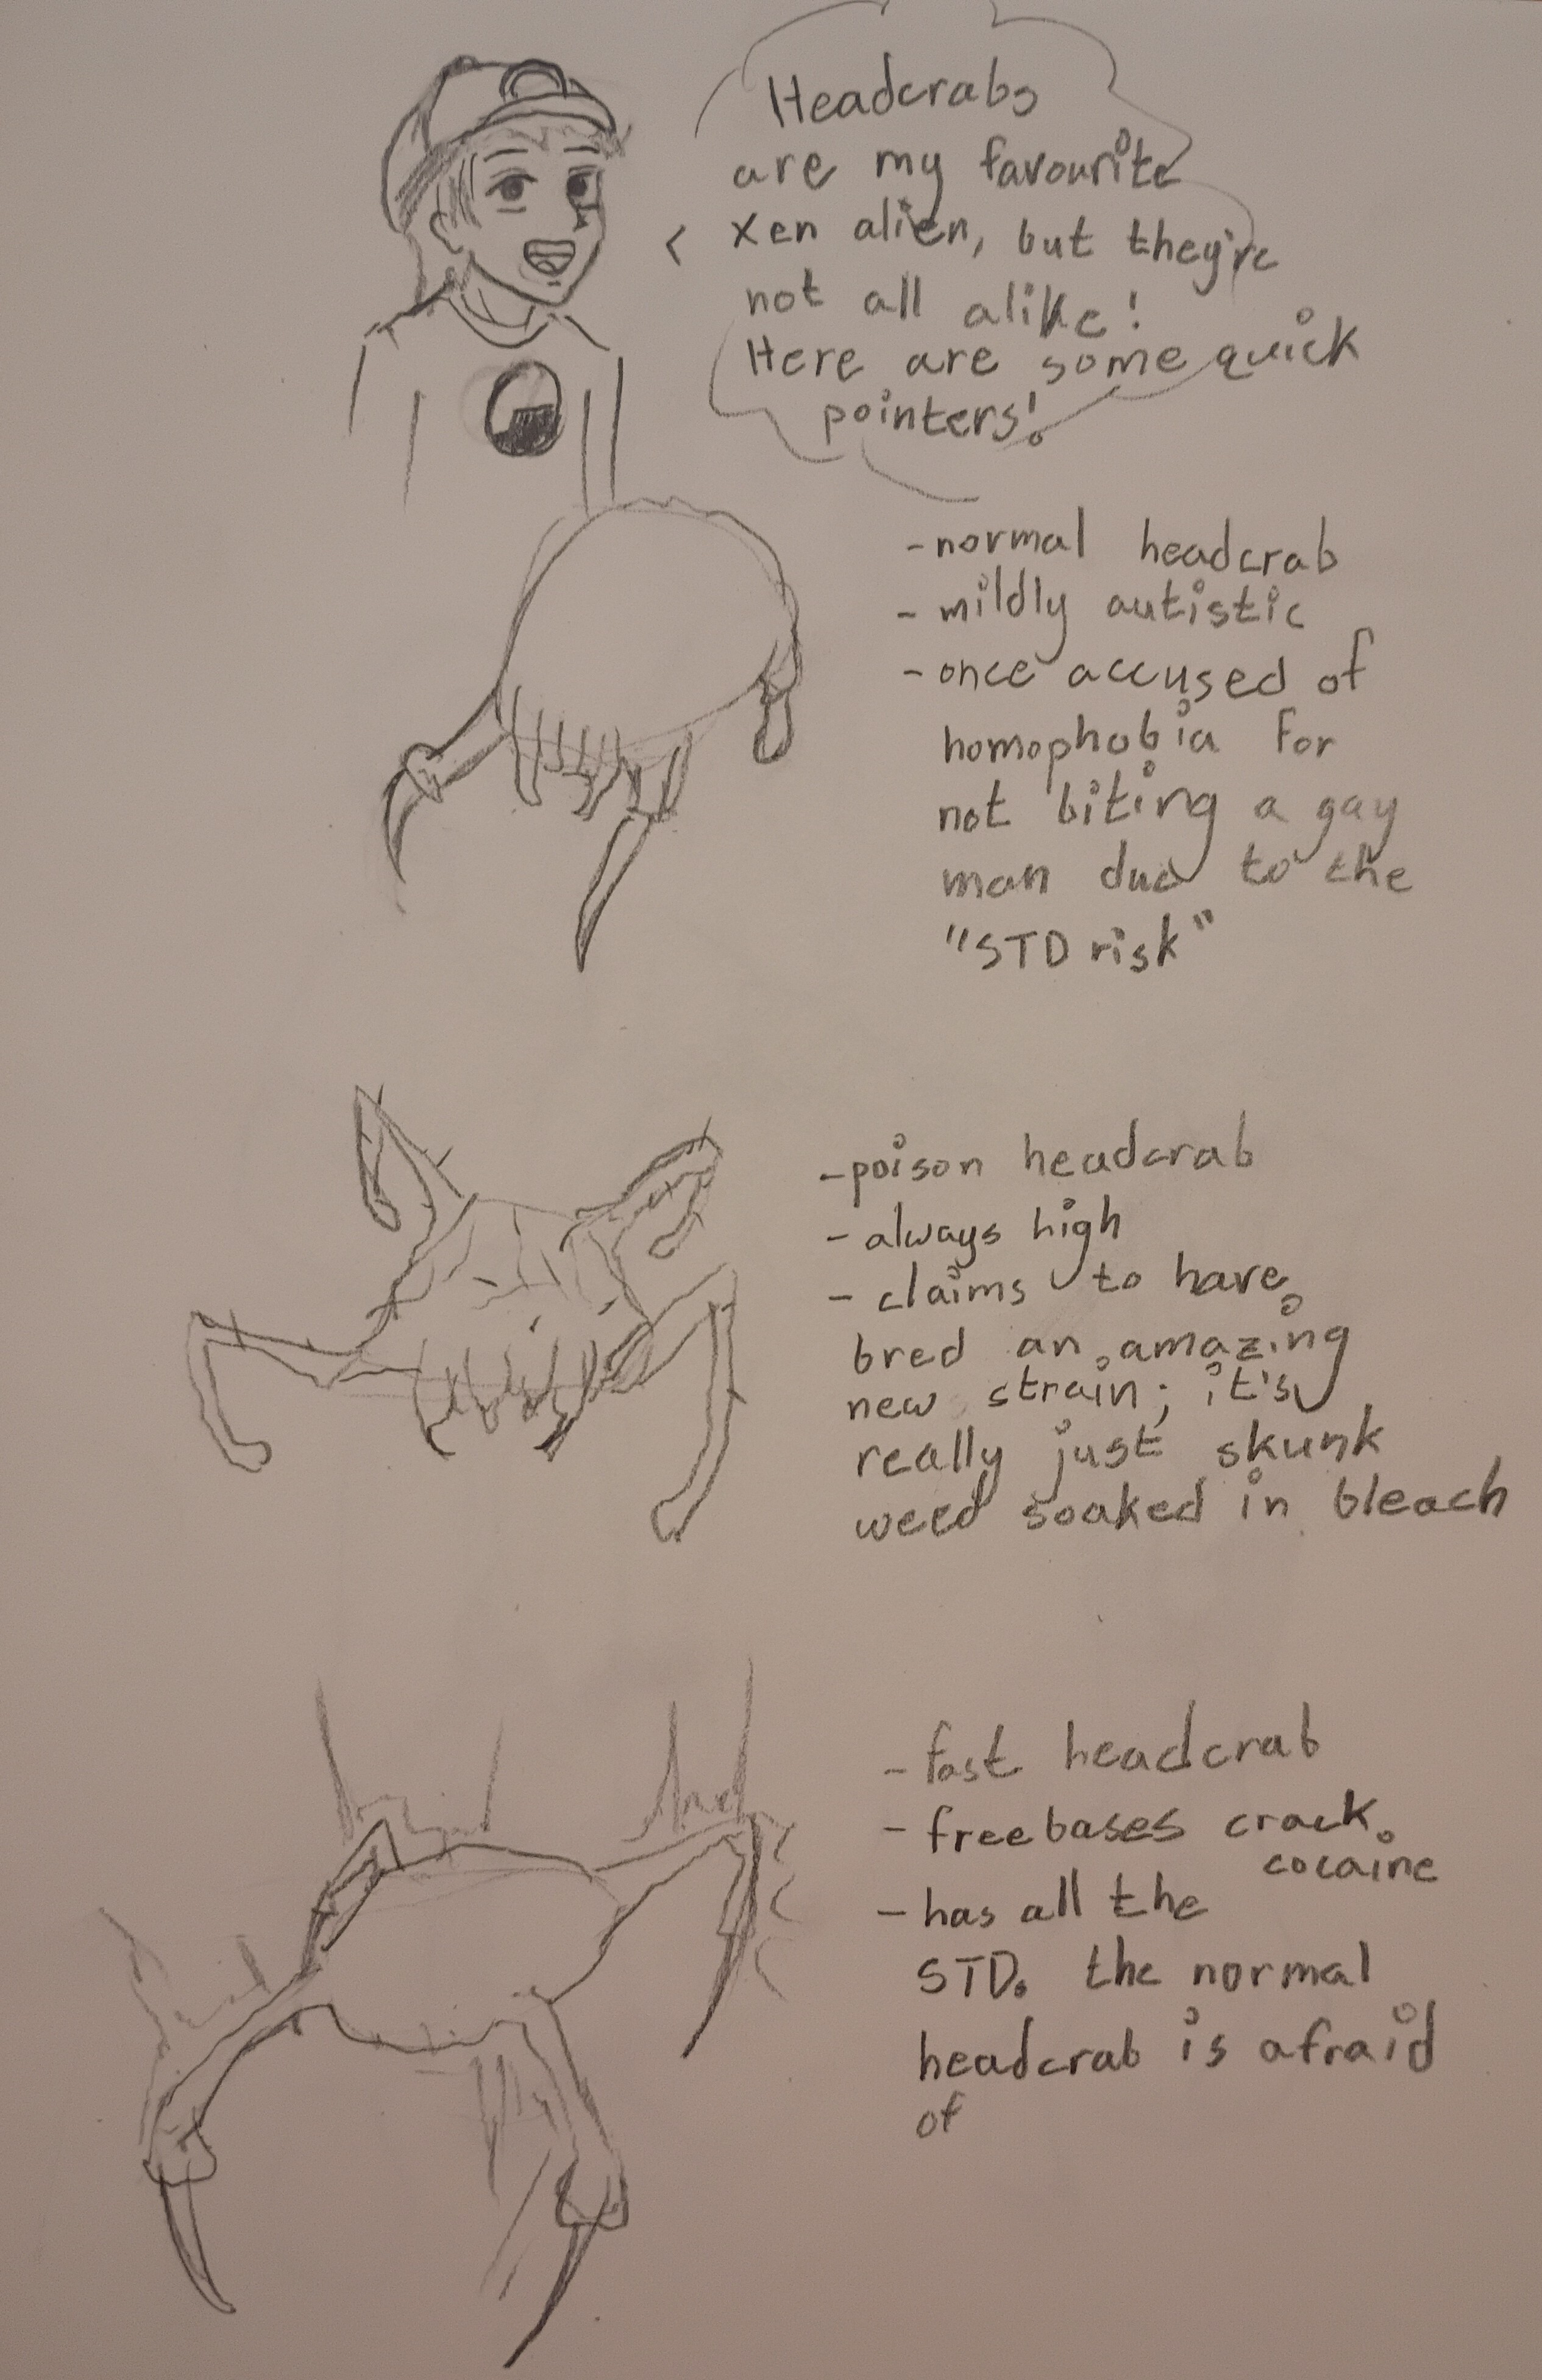 Headcrabs
are my favourite
Xen alien, but they're
not all alike!
Here are some quick
pointers!
-normal headcrab
- mildly autistic
- once accused of
homophobia for
not biting a gay
man due to the
"STD risk"
-poison headcrab
- always high
- claims to have
bred an amazing
new strain; it's
really just skunk
weed soaked in bleach
- fast headcrab
- freebases crack
cocaine
- has all the
STD. the normal
headcrab is afraid
of